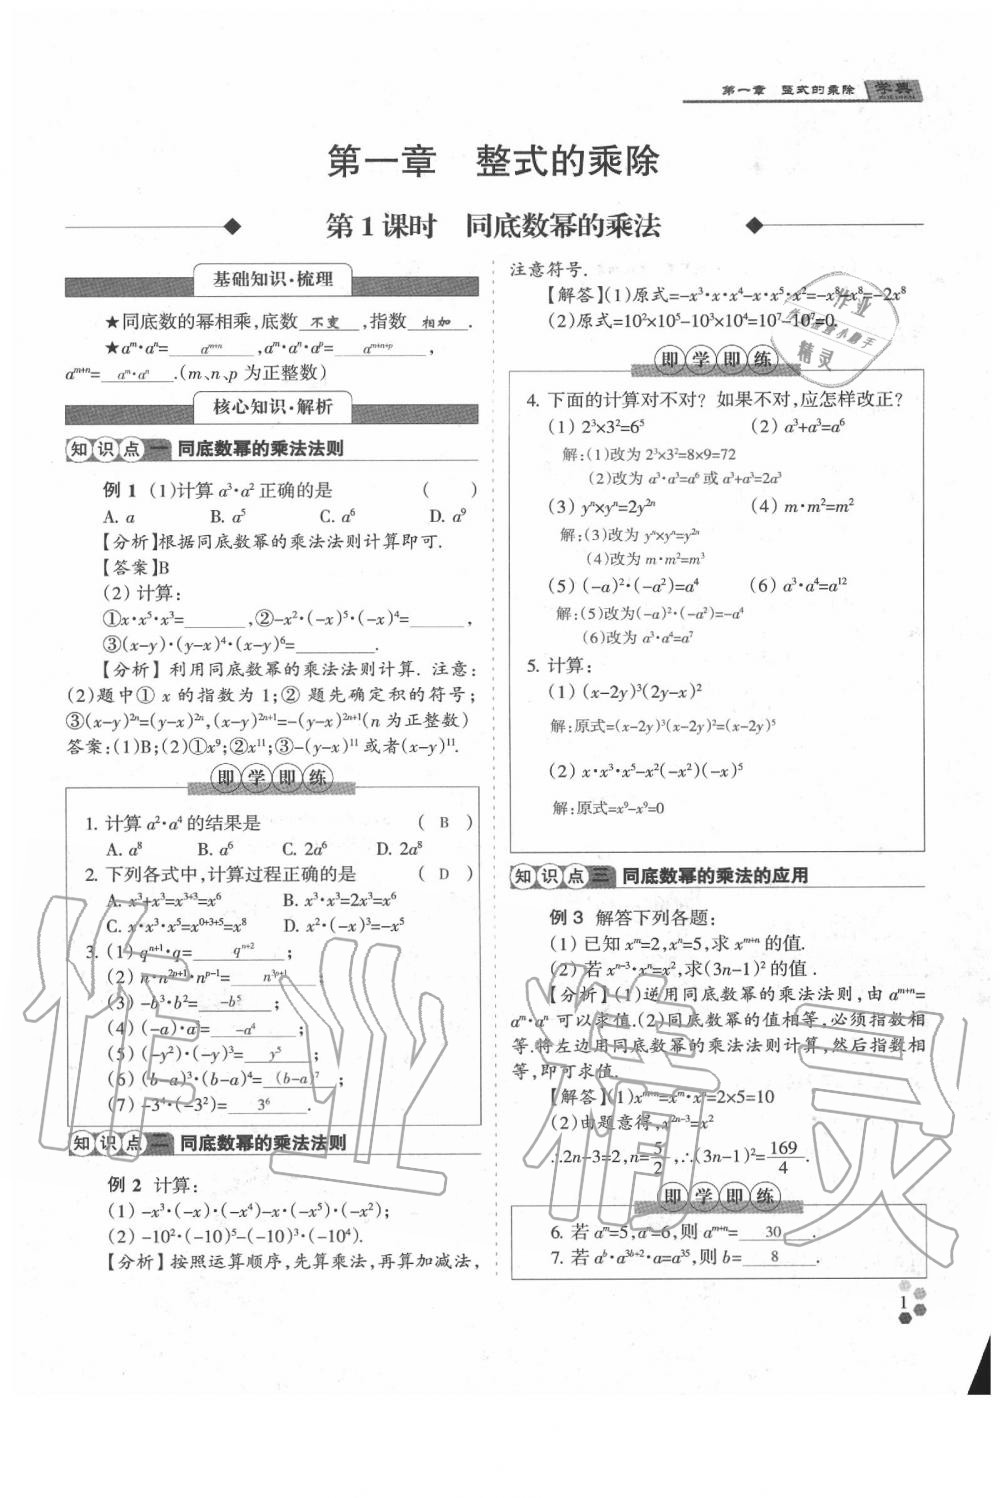 第一章 整式的乘除 学典
第一章 整式的乘除
第1课时 同底数幂的乘法
基础知识·梳理
★同底数的幂相乘,底数 不变 ,指数 相加 .
★aᵐ·aⁿ= aᵐ⁺ⁿ ,aᵐ·aⁿ·aᵖ= aᵐ⁺ⁿ⁺ᵖ ,
aᵐ⁺ⁿ= aᵐ·aⁿ .(m、n、p 为正整数)
核心知识·解析
知识点一 同底数幂的乘法法则
例 1 (1)计算 a³·a² 正确的是 ( )
A. a B. a⁵ C. a⁶ D. a⁹
【分析】根据同底数幂的乘法法则计算即可.
【答案】B
(2) 计算:
①x·x⁵·x³=______,②-x²·(-x)⁵·(-x)⁴=______,
③(x-y)·(y-x)⁴·(x-y)⁶=________.
【分析】 利用同底数幂的乘法法则计算. 注意:
(2)题中① x 的指数为 1;② 题先确定积的符号;
③(x-y)²ⁿ=(y-x)²ⁿ,(x-y)²ⁿ⁺¹=-(y-x)²ⁿ⁺¹(n 为正整数)
答案:(1)B;(2)①x⁹;②x¹¹;③-(y-x)¹¹ 或者(x-y)¹¹.
即学即练
1. 计算 a²·a⁴ 的结果是 ( B )
A. a⁸ B. a⁶ C. 2a⁶ D. 2a⁸
2. 下列各式中,计算过程正确的是 ( D )
A. x³+x³=x³⁺³=x⁶ B. x³·x³=2x³=x⁶
C. x·x³·x⁵=x⁰⁺³⁺⁵=x⁸ D. x²·(-x)³=-x⁵
3. (1) qⁿ⁺¹·q= qⁿ⁺² ;
(2) n·n²ᵖ⁺¹·nᵖ⁻¹= n³ᵖ⁺¹ ;
(3) -b³·b²= -b⁵ ;
(4) (-a)·a³= -a⁴ ;
(5) (-y²)·(-y)³= y⁵ ;
(6) (b-a)³·(b-a)⁴= (b-a)⁷ ;
(7) -3⁴·(-3²)= 3⁶ .
知识点二 同底数幂的乘法法则
例 2 计算:
(1) -x³·(-x)·(-x⁴)-x·(-x⁵)·(-x²);
(2) -10²·(-10)⁵-(-10)³·(-10⁴).
【分析】按照运算顺序,先算乘法,再算加减法,
注意符号.
【解答】(1)原式=-x³·x·x⁴-x·x⁵·x²=-x⁸-x⁸=-2x⁸
(2)原式=10²×10⁵-10³×10⁴=10⁷-10⁷=0.
作业
精灵
即学即练
4. 下面的计算对不对? 如果不对,应怎样改正?
(1) 2³×3²=6⁵ (2) a³+a³=a⁶
解:(1)改为 2³×3²=8×9=72
(2)改为 a³·a³=a⁶ 或 a³+a³=2a³
(3) yⁿ×yⁿ=2y²ⁿ (4) m·m²=m²
解:(3)改为 yⁿ×yⁿ=y²ⁿ
(4)改为 m·m²=m³
(5) (-a)²·(-a²)=a⁴ (6) a³·a⁴=a¹²
解:(5)改为(-a)²·(-a²)=-a⁴
(6)改为 a³·a⁴=a⁷
5. 计算:
(1) (x-2y)³(2y-x)²
解:原式=(x-2y)³(x-2y)²=(x-2y)⁵
(2) x·x³·x⁵-x²(-x²)(-x)⁵
解:原式=x⁹-x⁹=0
知识点三 同底数幂的乘法的应用
例 3 解答下列各题:
(1) 已知 xᵐ=2,xⁿ=5,求 xᵐ⁺ⁿ 的值.
(2) 若 xⁿ⁻³·xⁿ=x²,求(3n-1)² 的值.
【分析】(1)逆用同底数幂的乘法法则,由 aᵐ⁺ⁿ=
aᵐ·aⁿ 可以求值.(2)同底数幂的值相等,必须指数相
等.将左边用同底数幂的乘法法则计算,然后指数相
等,即可求值.
【解答】(1)xᵐ⁺ⁿ=xᵐ·xⁿ=2×5=10
(2)由题意得,x²ⁿ⁻³=x²
∴2n-3=2,n=5/2,∴(3n-1)²=169/4.
即学即练
6. 若 aᵐ=5,aⁿ=6,则 aᵐ⁺ⁿ= 30 .
7. 若 aᵇ·a³ᵇ⁺²·a=a³⁵,则 b= 8 .
1
作业精灵